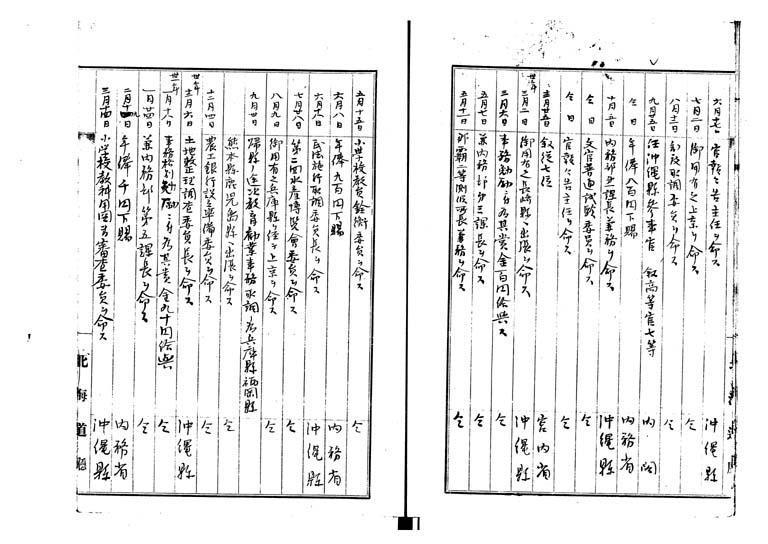 六月 官報々告主任ヲ命ス 沖縄縣
七月二日 御用有之上京ヲ命ス 仝
八月十二日 取調委員ヲ命ス 仝
九月廿五日 任沖縄縣参事官 叙高等官七等 内閣
仝日 年俸八百円下賜 内務省
十月五日 内務部第三課長兼務ヲ命ス 沖縄縣
仝日 文官普通試験委員ヲ命ス 仝
仝日 官報々告主任ヲ命ス 仝
十一月廿五日 叙従七位 宮内省
三月二日 御用有之長崎縣ヘ出張ヲ命ス 沖縄縣
三月六日 事務勉励ニ付為其賞金百円給與ス 仝
五月七日 兼内務部第三課長ヲ命ス 仝
五月十一日 那覇二等測候所長兼務ヲ命ス 仝
五月十五日 小学校教員銓衡委員ヲ命ス 仝
六月八日 年俸九百円下賜 内務省
六月十八日 民法施行取調委員長ヲ命ス 沖縄縣
七月廿八日 第二回水産博覧会委員ヲ命ス 仝
八月九日 御用有之兵庫縣ヲ経テ上京ヲ命ス 仝
九月四日 帰縣ノ途次教育勧業事務取調ノ為兵庫縣福岡縣
熊本縣鹿児島縣ヘ出張ヲ命ス 仝
十二月四日 農工銀行設立準備委員ヲ命ス 仝
土地整理調査委員長ヲ命ス 沖縄縣
事務格別勉励ニ付為其賞金九十円給與 仝
一月廿四日 兼内務部第五課長ヲ命ス 仝
二月十四日 年俸千円下賜 内務省
三月十四日 小学校教科用図書審査委員ヲ命ス 沖縄縣
北海道廳